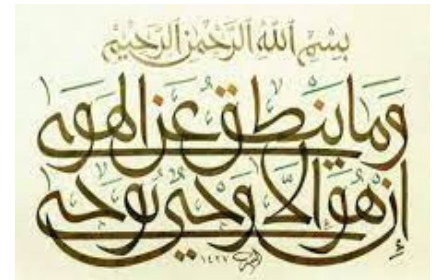 بِسْمِ ٱللَّهِ ٱلرَّحْمَٰنِ ٱلرَّحِيمِ
وَمَا يَنطِقُ عَنِ الهَوَى
إِنْ هُوَ إِلَّا وَحْيٌ يُوحَى
١٤٢٧